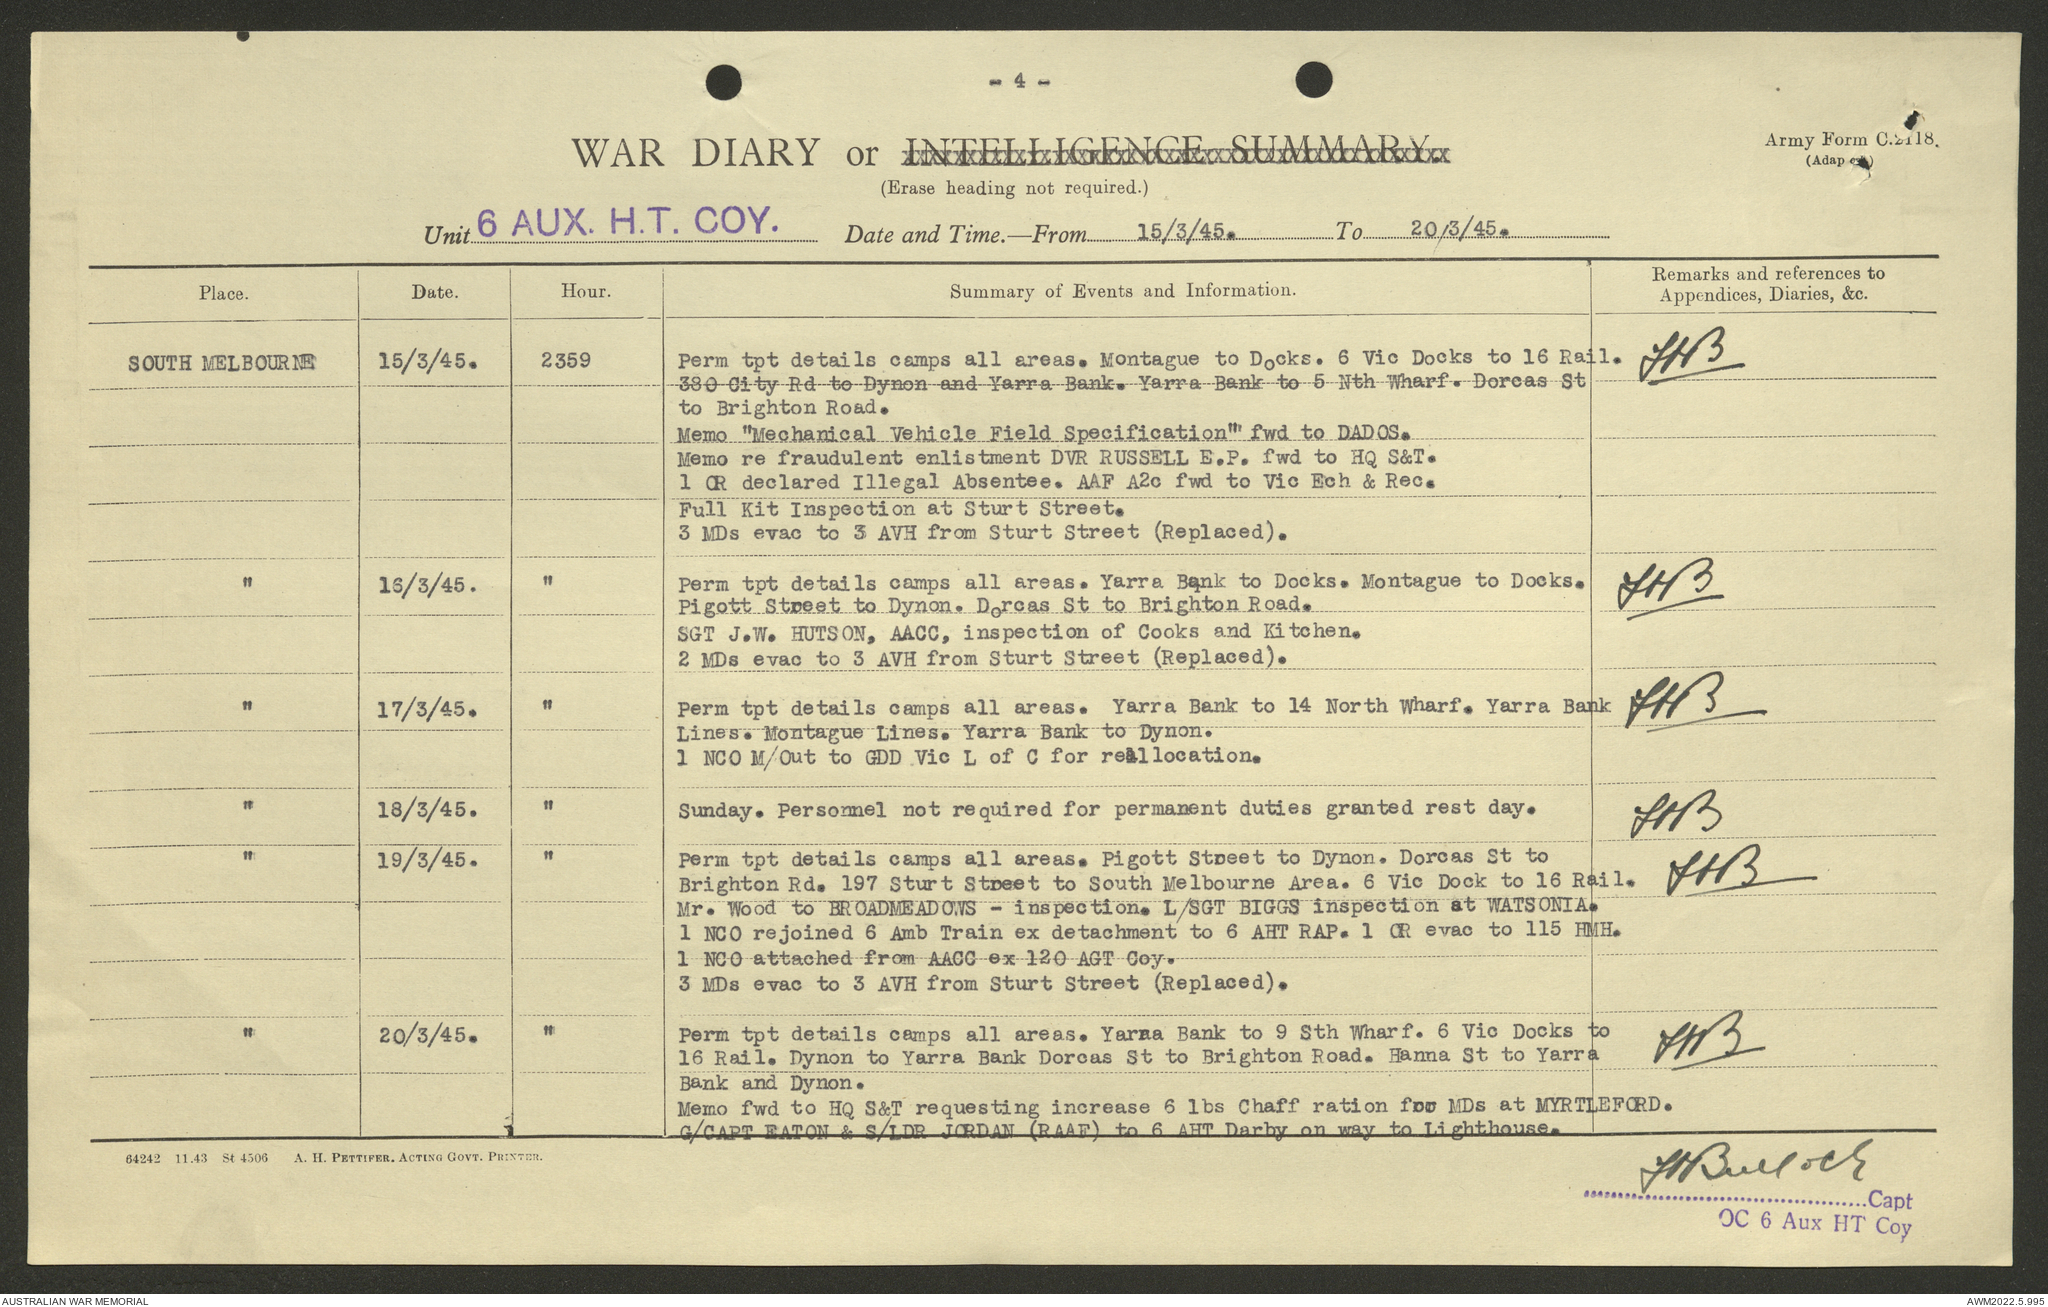 - 4 -
WAR DIARY or INTELLIGENCE SUMMARY.
(Erase heading not required.)
Army Form C.2118.
(Adap
Unit 6 AUX. H.T. COY. Date and Time.—From 15/3/45. To 20/3/45.
Place. Date. Hour. Summary of Events and Information. Remarks and references to
Appendices, Diaries, &c.
SOUTH MELBOURNE 15/3/45. 2359 Perm tpt details camps all areas. Montague to Docks. 6 Vic Docks to 16 Rail. FHB
380 City Rd to Dynon and Yarra Bank. Yarra Bank to 5 Nth Wharf. Dorcas St
to Brighton Road.
Memo "Mechanical Vehicle Field Specification"' fwd to DADOS.
Memo re fraudulent enlistment DVR RUSSELL E.P. fwd to HQ S&T.
1 OR declared Illegal Absentee. AAF A2c fwd to Vic Ech & Rec.
Full Kit Inspection at Sturt Street.
3 MDs evac to 3 AVH from Sturt Street (Replaced).
" 16/3/45. " Perm tpt details camps all areas. Yarra Bank to Docks. Montague to Docks. FHB
Pigott Street to Dynon. Dorcas St to Brighton Road.
SGT J.W. HUTSON, AACC, inspection of Cooks and Kitchen.
2 MDs evac to 3 AVH from Sturt Street (Replaced).
" 17/3/45. " Perm tpt details camps all areas. Yarra Bank to 14 North Wharf. Yarra Bank FHB
Lines. Montague Lines. Yarra Bank to Dynon.
1 NCO M/Out to GDD Vic L of C for reallocation.
" 18/3/45. " Sunday. Personnel not required for permanent duties granted rest day. FHB
" 19/3/45. " Perm tpt details camps all areas. Pigott Street to Dynon. Dorcas St to FHB
Brighton Rd. 197 Sturt Street to South Melbourne Area. 6 Vic Dock to 16 Rail.
Mr. Wood to BROADMEADOWS - inspection. L/SGT BIGGS inspection at WATSONIA.
1 NCO rejoined 6 Amb Train ex detachment to 6 AHT RAP. 1 OR evac to 115 HMH.
1 NCO attached from AACC ex 120 AGT Coy.
3 MDs evac to 3 AVH from Sturt Street (Replaced).
" 20/3/45. " Perm tpt details camps all areas. Yarra Bank to 9 Sth Wharf. 6 Vic Docks to FHB
16 Rail. Dynon to Yarra Bank Dorcas St to Brighton Road. Hanna St to Yarra
Bank and Dynon.
Memo fwd to HQ S&T requesting increase 6 lbs Chaff ration for MDs at MYRTLEFORD.
G/CAPT EATON & S/LDR JORDAN (RAAF) to 6 AHT Darby on way to Lighthouse.
64242 11.43 St 4506 A. H. PETTIFER, ACTING GOVT. PRINTER.
FHBullock
Capt
OC 6 Aux HT Coy
AUSTRALIAN WAR MEMORIAL
AWM2022.5.995